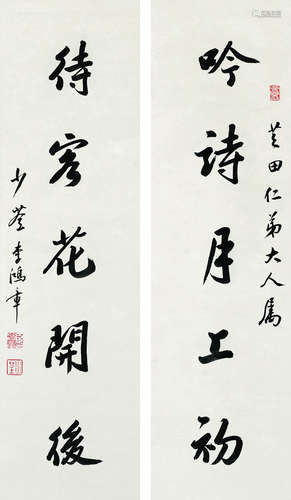 吟詩月上初
芝田仁弟大人屬
待客花開後
少荃李鴻章